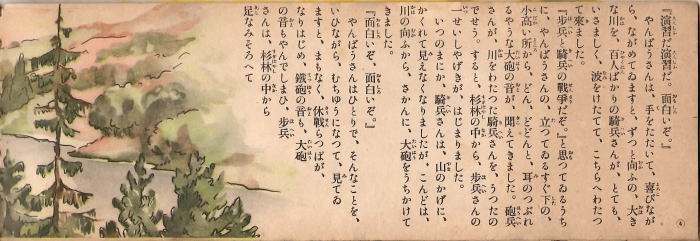 『演習だ演習だ。面白いぞ。』
やんぼうさんは、手をたたいて、喜びなが
ら、ながめてゐますと、ずつと向ふの、大き
な川を、百人ばかりの騎兵さんが、とても、
いさましく、波をけたてて、こちらへわたつ
て來ました。
『步兵と騎兵の戰爭だぞ。』と思つてゐるうち
に、やんぼうさんの、立つてゐるすぐ下の、
小高い所から、どん、どどんと、耳のつぶれ
るやうな大砲の音が、聞えて來ました。砲兵
さんが、川をわたつた騎兵さんを、うつたの
でせう。すると、杉林の中から、步兵さんの
一せいしやげきが、はじまりました
いつのまにか、騎兵さんは、山のかげに、
かくれて見えなくなりましたが、こんどは、
川の向ふから、さかんに、大砲をうちかけて
きました。
『面白いぞ、面白いぞ。』
やんぼうさんはひとりで、そんなことを、
いひながら、むちゆうになつて、見てゐ
ますと、まもなく、休戰らつぱが、
なりはじめ、鐵砲の音も、大砲
の音もやんでしまひ、步兵
さんは、杉林の中から
足なみそろへて
4